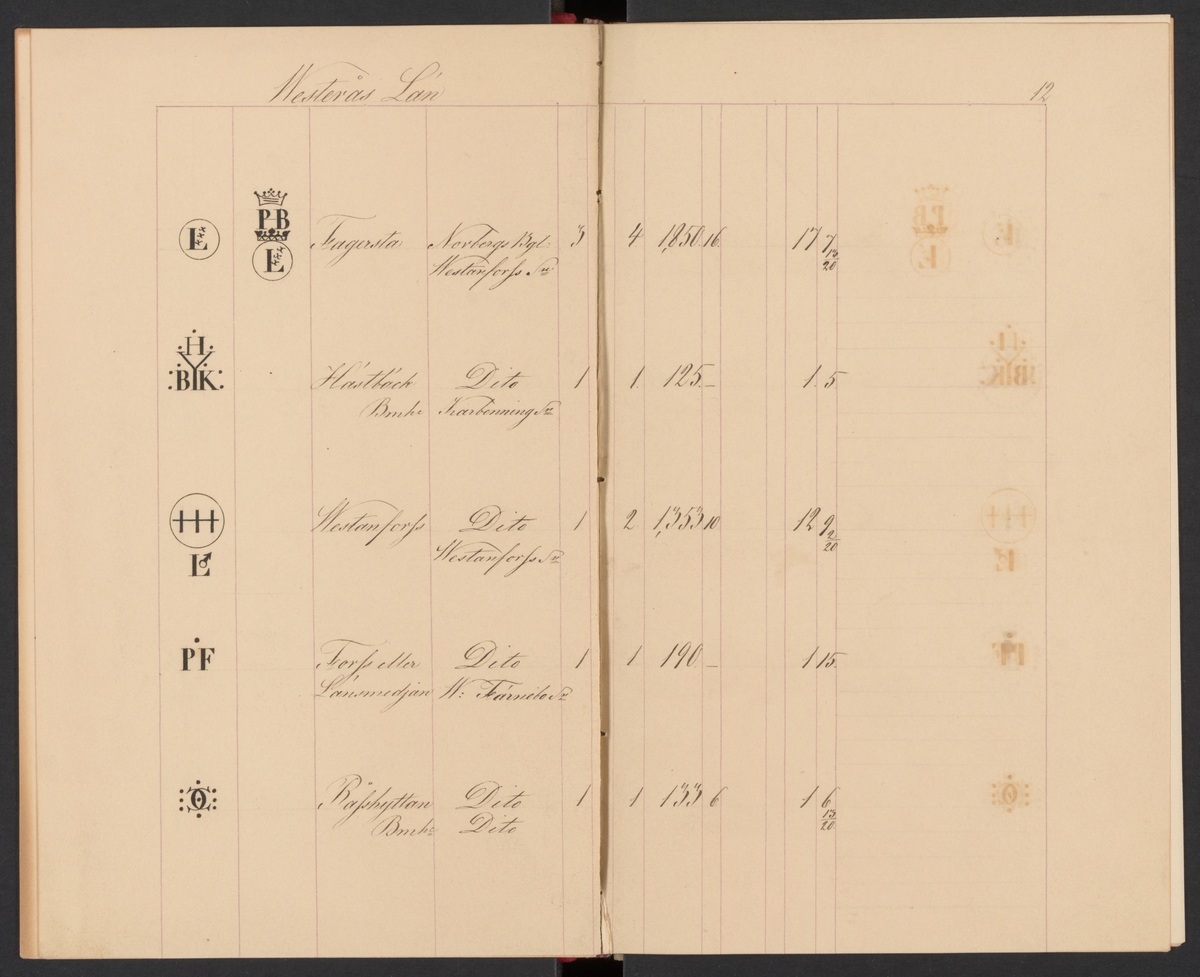 Westerås Län
12
L P-B L Fagersta Norbergs Bgl: 3 4 1,850 16 17 7 13/20
Westanforss Sn
H
BIK Hästbäck Dito 1 1 125 – 1 5
Bruk Karbenning Sn
Westanforss Dito 1 2 1,353 10 12 9 2/20
L Westanforss Sn
PF Forss eller Dito 1 1 190 – 1 15
Länsmedjan W: Färnebo Sn
Rösshyttan Dito 1 1 133 6 1 6 13/20
Bruk Dito